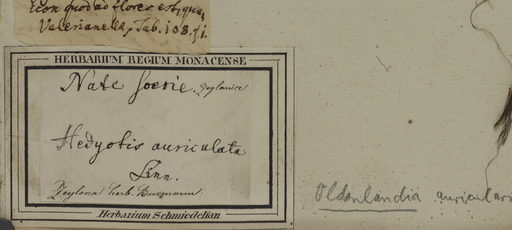 Icon quoad flores est, qua,
Valerianella, Tab. 108. f. 1.
HERBARIUM REGIUM MONACENSE
Nate soerie. Zeylanice
Hedyotis auriculata
Linn.
Zeylona herb. Burmann.
Herbarium Schmiedelian
Oldenlandia auriculari